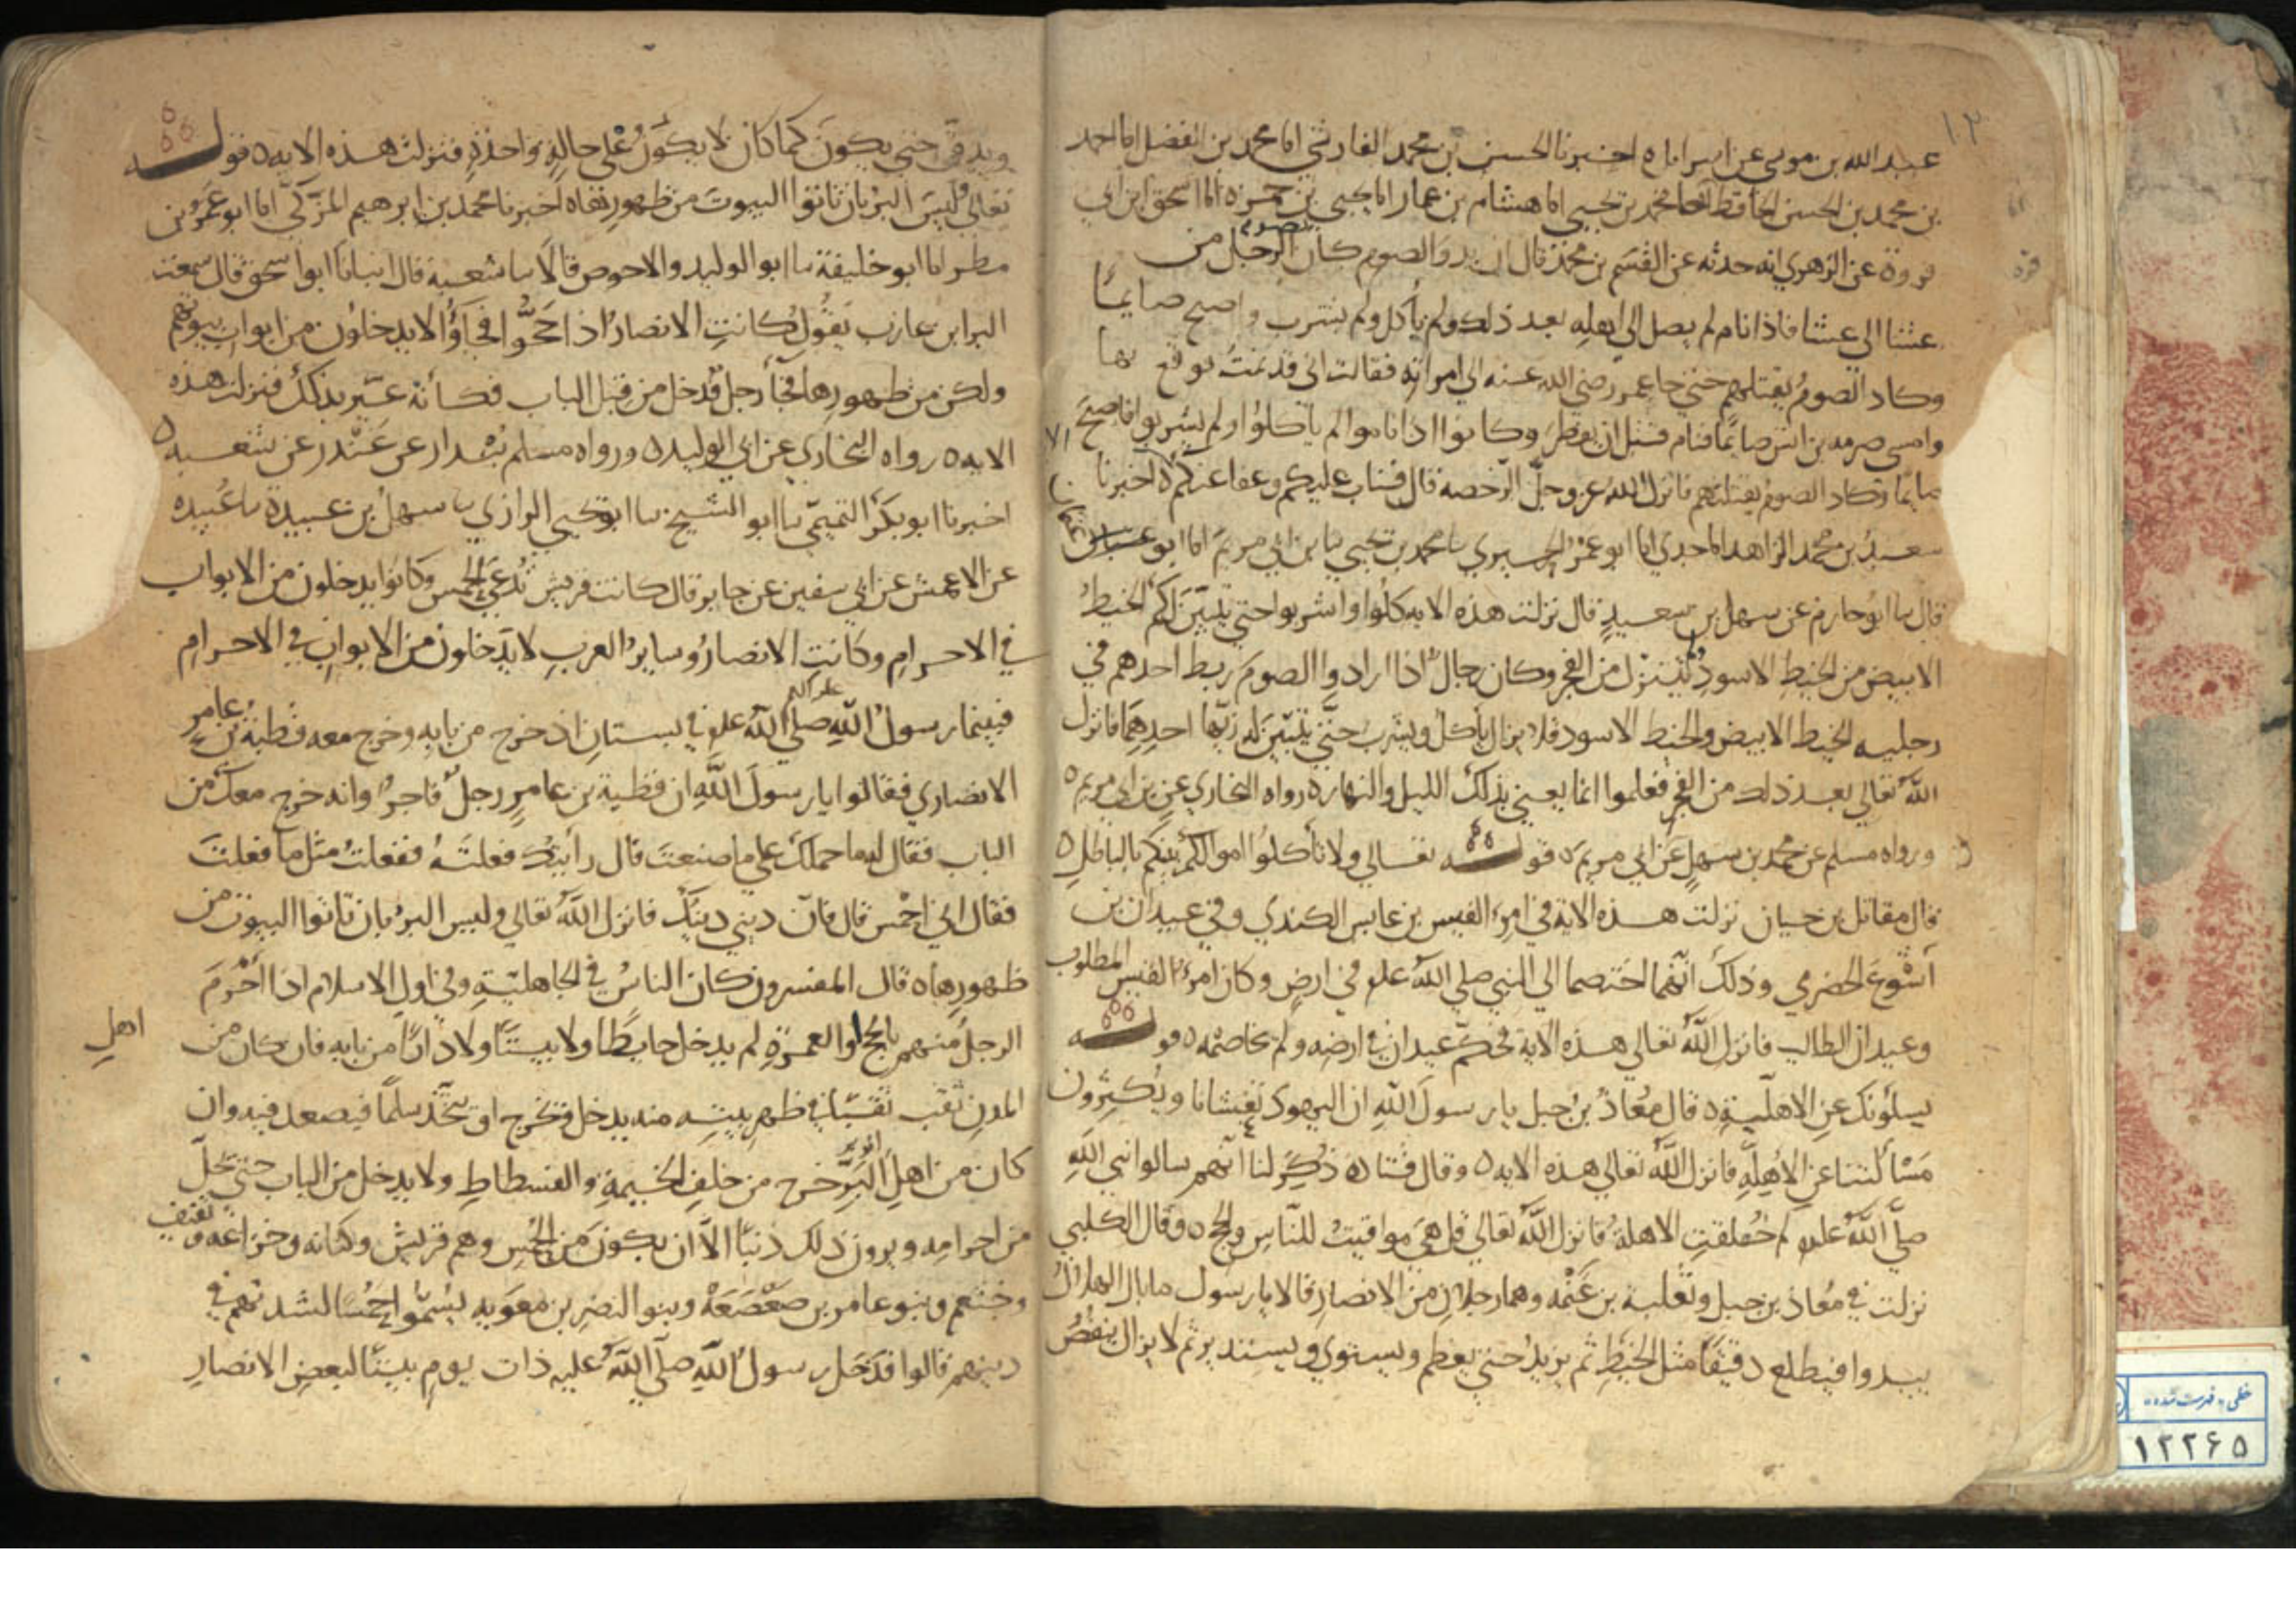 ١٢
عبد الله بن موسى عن اسراىل ه اخبرنا الحسن بن محمد الفارسي انا محمد بن الفضل انا احمد
بن محمد بن الحسن الحافظ انا محمد بن يحيى انا هشام بن عمار انا يحيى بن حمزه انا اسحق بن ابي
فروة عن الزهري انه حدثه عن القسم بن محمد قال ان بدو الصوم كان يصوم الرجل من
عشا الى عشا فاذا نام لم يصل الى اهله بعد ذلك ولم يأكل ولم يشرب واصبح صايما
وكاد الصوم يقتلهم حتى جا عمر رضي الله عنه الى امراته فقالت اني قد نمت فوقع بها
وامسى صرمه بن انس صايما فنام قبل ان يفطر وكانوا اذا ناموا لم ياكلوا ولم يشربوا فاصبح
صايما وكاد الصوم يقتلهم فانزل الله عز وجل الرخصه قال فتاب عليكم وعفا عنكم ه اخبرنا
سعيد بن محمد الزاهد انا جدي انا ابو عمرو الحيري نا محمد بن يحيى نا بن ابي مريم انا ابو غسان
قال نا ابو حازم عن سهل بن سعيد قال نزلت هذه الايه كلوا واشربوا حتى يتبين لكم الخيط
الابيض من الخيط الاسود ولم ينزل من الفجر وكان رجال اذا ارادوا الصوم ربط احدهم في
رجليه الخيط الابيض والخيط الاسود فلا يزال ياكل ويشرب حتى يتبين له زيهما احدهما فانزل
الله تعالى بعد ذلك من الفجر فعلموا انما يعني بذلك الليل والنهار ه رواه البخاري عن بن ابي مريم ه
ورواه مسلم عن محمد بن سهل عن ابي مريم ه قوله تعالى ولا تأكلوا اموالكم بينكم بالباطل ه
قال مقاتل بن حيان نزلت هذه الاية في امرء القيس بن عابس الكندي وفي عبدان بن
أشوع الحضرمي وذلك انهما اختصما الى النبي صلى الله علم في ارض وكان امرؤ القيس المطلوب
وعبدان الطالب فانزل الله تعالى هذه الاية فحكم عبدان في ارضه ولم يخاصمه ه قوله
يسلونك عن الاهلية ه قال معاذ بن جبل يا رسول الله ان اليهود تغشانا ويكثرون
مسألتنا عن الاهلة فانزل الله تعالى هذه الايه ه وقال قتاده ذكر لنا انهم سالوا نبي الله
صلى الله علم لم خلقت الاهلة فانزل الله تعالى قل هي مواقيت للناس والحج ه وقال الكلبي
نزلت في معاذ بن جبل وثعلبة بن غنمه وهما رجلان من الانصار قالا يا رسول ما بال الهلال
يبدوا فيطلع دقيقا مثل الخيط ثم يزيد حتى يعظم ويستوي ويستدير ثم لا يزال ينقص
ويدق حتى يكون كما كان لا يكون على حالة واحدة فنزلت هذه الايه ه قوله
تعالى وليس البر بان تاتوا البيوت من ظهورها ه اخبرنا محمد بن ابرهيم المزكي انا ابو عمرو بن
مطر انا ابو خليفة نا ابو الوليد والاحوص قالا نا شعبة قال انبانا ابو اسحق قال سمعت
البرا بن عازب يقول كانت الانصار اذا حجوا فجاؤا لا يدخلون من ابواب بيوتهم
ولكن من ظهورها فجأ رجل فدخل من قبل الباب فكأنه عير بذلك فنزلت هذه
الايه ه رواه البخاري عن ابي الوليد ه ورواه مسلم بندار عن غندر عن شعبه ه
اخبرنا ابو بكر التميمي نا ابو الشيخ نا ابو يحيى الرازي نا سهل بن عبيدة نا عبيده
عن الاعمش عن ابي سفين عن جابر قال كانت قريش تدعى الحمس وكانوا يدخلون من الابواب
في الاحرام وكانت الانصار وساير العرب لا يدخلون من الابواب في الاحرام
فبينما رسول الله صلى الله علم في بستان اذ خرج من بابه وخرج معه قطبة بن عامر
الانصاري فقالوا يا رسول الله ان قطبة بن عامر رجل فاجر وانه خرج معك من
الباب فقال له ما حملك على ما صنعت قال رأيتك فعلته ففعلت مثل ما فعلت
فقال اني احمس قال فان ديني دينك فانزل الله تعالى وليس البر بان تاتوا البيوت من
ظهورها ه قال المفسرون كان الناس في الجاهلية وفي اول الاسلام اذا أحرم
الرجل منهم بالحج او العمرة لم يدخل حايطا ولا بيتا ولا دارا من بابه فان كان من اهل
المدن نقب نقبا في ظهر بيته منه يدخل ويخرج او يتخذ سلما فيصعد فيه وان
كان من اهل الوبر خرج من خلف الخيمة والفسطاط ولا يدخل من الباب حتى يحل
من احرامه ويرون ذلك ذنبا الا ان يكون من الحمس وهم قريش وكنانه وخزاعه وثقيف
وخثعم وبنو عامر بن صعصعة وبنو النضر بن معويه يسموا حمسا لشدتهم في
دينهم قالوا فدخل رسول الله صلى الله عليه ذات يوم بيتا لبعض الانصار
خطی «فهرست شده»
١٢٢۶۵